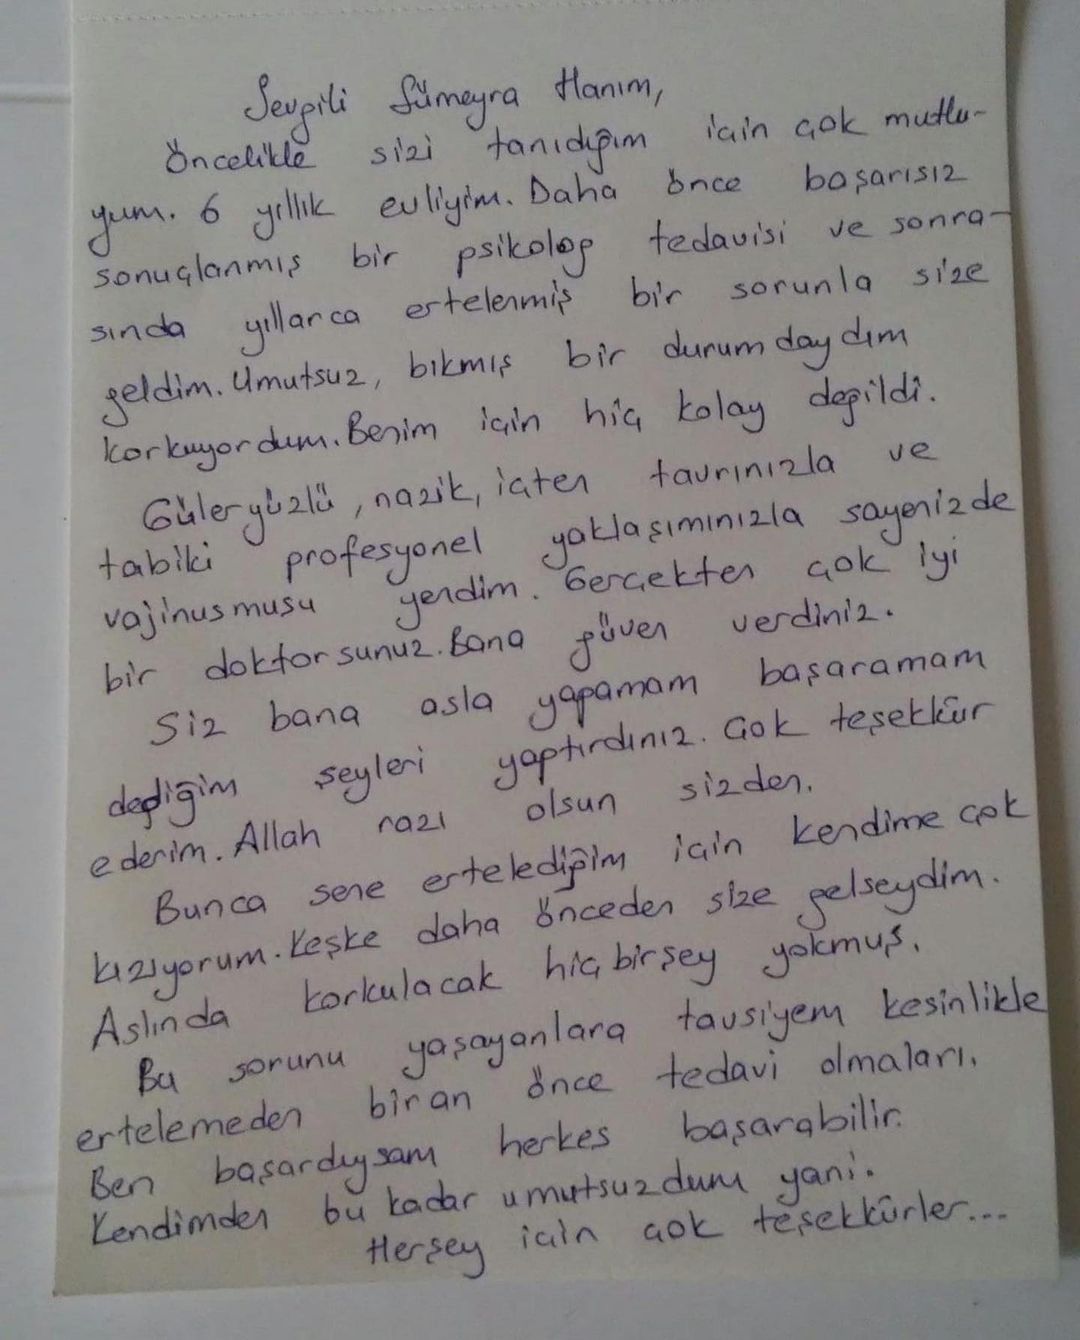 Sevgili Sümeyra Hanım,
Öncelikle sizi tanıdığım için çok mutlu-
yum. 6 yıllık evliyim. Daha önce başarısız
sonuçlanmış bir psikolog tedavisi ve sonra-
sında yıllarca ertelenmiş bir sorunla size
geldim. Umutsuz, bıkmış bir durumdaydım
korkuyordum. Benim için hiç kolay değildi.
Güleryüzlü, nazik, içten tavrınızla ve
tabiki profesyonel yaklaşımınızla sayenizde
vajinusmusu yendim. Gerçekten çok iyi
bir doktorsunuz. Bana güven verdiniz.
Siz bana asla yapamam başaramam
dediğim şeyleri yaptırdınız. Çok teşekkür
ederim. Allah razı olsun sizden.
Bunca sene ertelediğim için kendime çok
kızıyorum. Keşke daha önceden size gelseydim.
Aslında korkulacak hiçbirşey yokmuş.
Bu sorunu yaşayanlara tavsiyem kesinlikle
ertelemeden biran önce tedavi olmaları.
Ben başardıysam herkes başarabilir.
Kendimden bu kadar umutsuzdum yani.
Herşey için çok teşekkürler...